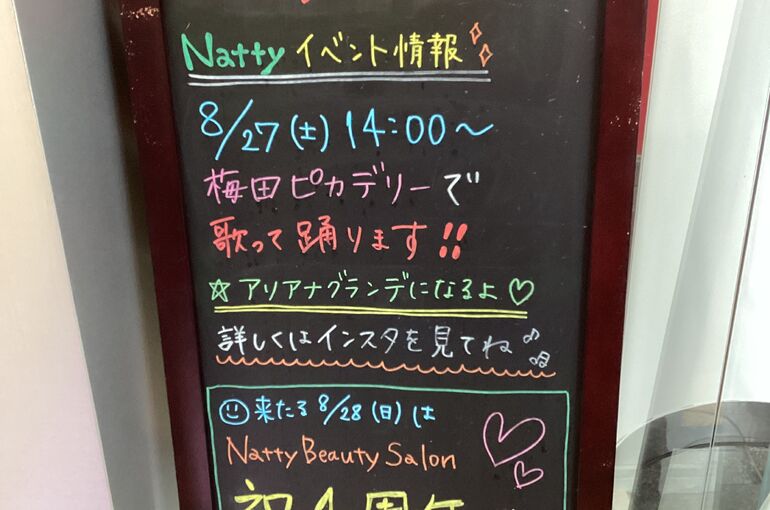 Natty イベント情報
8/27(土) 14:00〜
梅田ピカデリーで
歌って踊ります!!
☆アリアナグランデになるよ♡
詳しくはインスタを見てね♪♫
☺来たる 8/28(日)は
Natty Beauty Salon
祝4周年